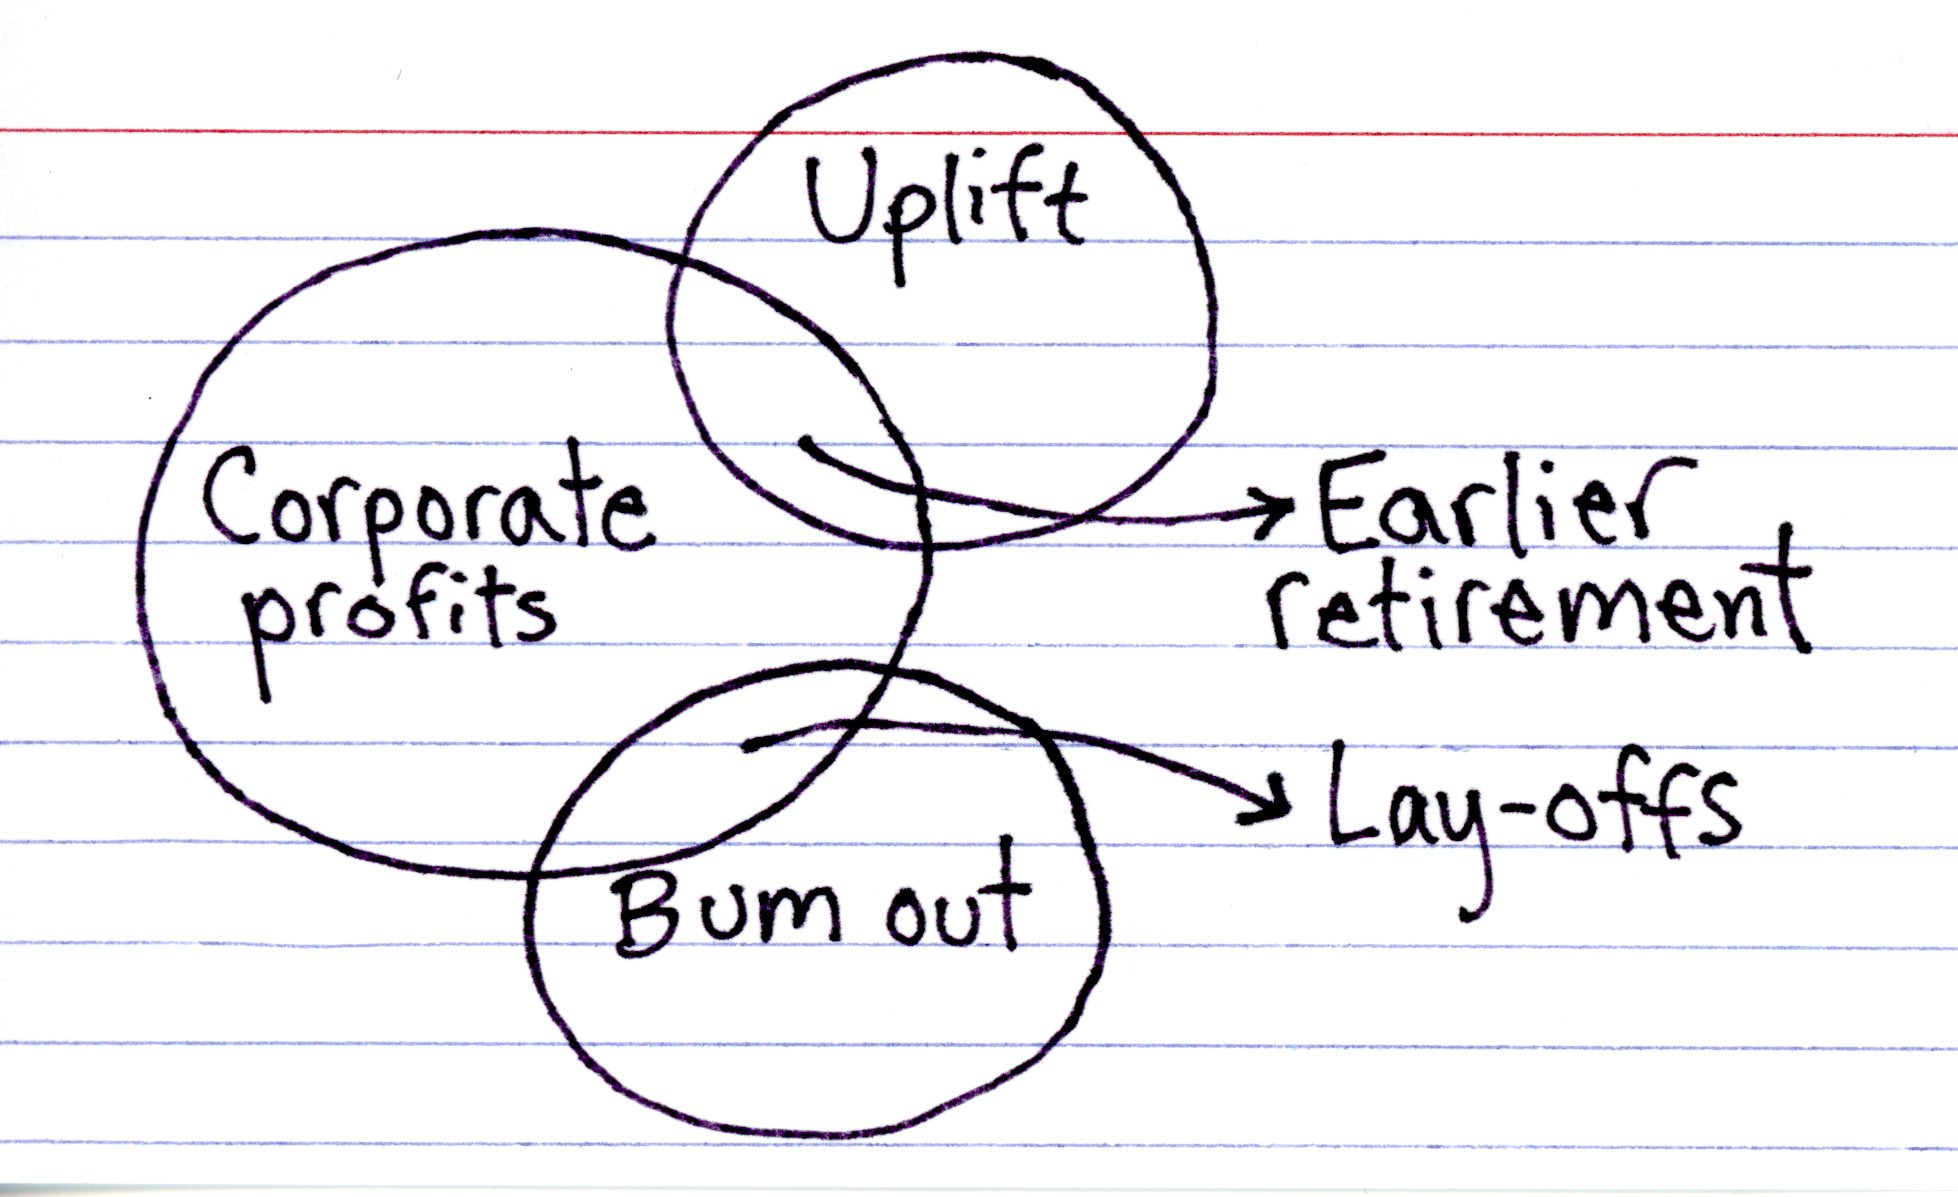 Uplift
Corporate
profits
Earlier
retirement
Lay-offs
Bum out